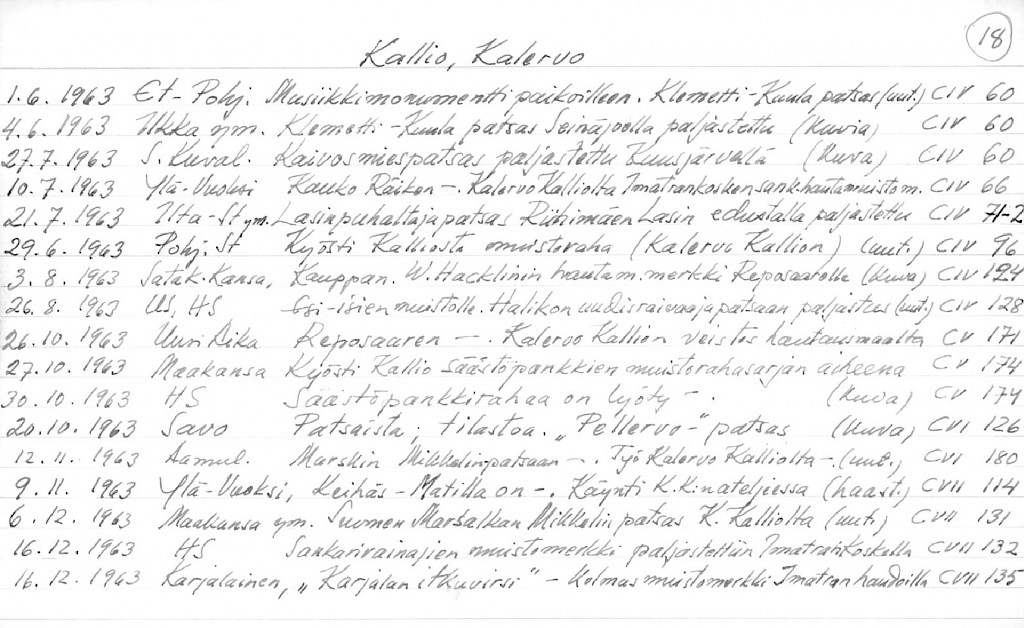 18
Kallio, Kalervo
1.6. 1963 Et-Pohj. Musiikkimonumentti paikoilleen. Klemetti-Kuula patsas (uut.) CIV 60
4.6. 1963 Ilkka ym. Klemetti-Kuula patsas Seinäjoella paljastettu (kuvia) CIV 60
27.7. 1963 S. Kuval. Kaivosmiespatsas paljastettu Kuusjärvellä (kuva) CIV 60
10.7. 1963 Ylä-Vuoksi Kauko Räiken -. Kalervo Kalliolta Imatrankosken sank.hautamuistom. CIV 66
21.7. 1963 Ilta-St ym. Lasinpuhaltajapatsas Riihimäen Lasin edustalla paljastettu CIV 71-2
29.6. 1963 Pohj. St Kyösti Kalliosta muistoraha (Kalervo Kallion) (uut.) CIV 96
3. 8. 1963 Satak. Kansa, Kauppan. W. Hacklinin hautam.merkki Reposaarella (kuva) CIV 124
26. 8. 1963 US, HS Esi-isien muistolle. Halikon uudisraivaajapatsaan paljastus (uut.) CIV 128
26.10. 1963 Uusi Aika Reposaaren -. Kalervo Kallion veistos hautausmaalta CV 171
27.10. 1963 Maakansa Kyösti Kallio säästöpankkien muistorahasarjan aiheena CV 174
30.10. 1963 HS Säästöpankkirahaa on lyöty -. (kuva) CV 174
20.10. 1963 Savo Patsaista; tilastoa. "Pellervo-" patsas (kuva) CVI 126
12. 11. 1963 Aamul. Marskin Mikkelinpatsaan -. Työ Kalervo Kalliolta -. (uut.) CVI 180
9. 11. 1963 Ylä-Vuoksi, Keihäs-Matilla on -. Käynti K.K:n ateljeessa (haast.) CVII 114
6. 12. 1963 Maakansa ym. Suomen Marsalkan Mikkelin patsas K. Kalliolta (uut.) CVII 131
16. 12. 1963 HS Sankarivainajien muistomerkki paljastettiin Imatrankoskella CVII 132
16. 12. 1963 Karjalainen, "Karjalan itkuvirsi" - kolmas muistomerkki Imatran haudoilla CVII 135